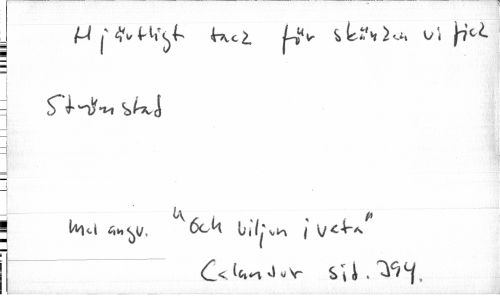 Hjärtligt tack för skänken vi fick
Strömstad
Mel angv. "Och viljen i veta"
Calander sid. 394.